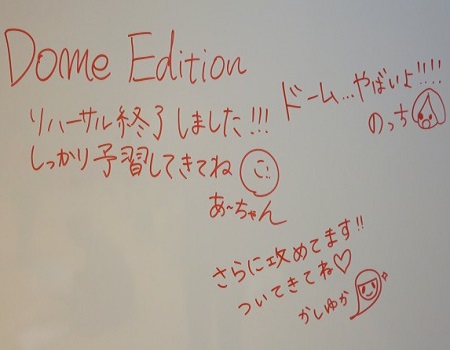 Dome Edition
リハーサル終了しました!!!
しっかり予習してきてね
あ〜ちゃん
ドーム...やばいよ!!!!
のっち
さらに攻めてます!!
ついてきてね♡
かしゆか